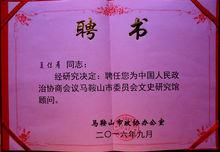 聘书
同志：
经研究决定：聘任您为中国人民政
治协商会议马鞍山市委员会文史研究馆
顾问。
马鞍山市政协办公室
二〇一六年九月